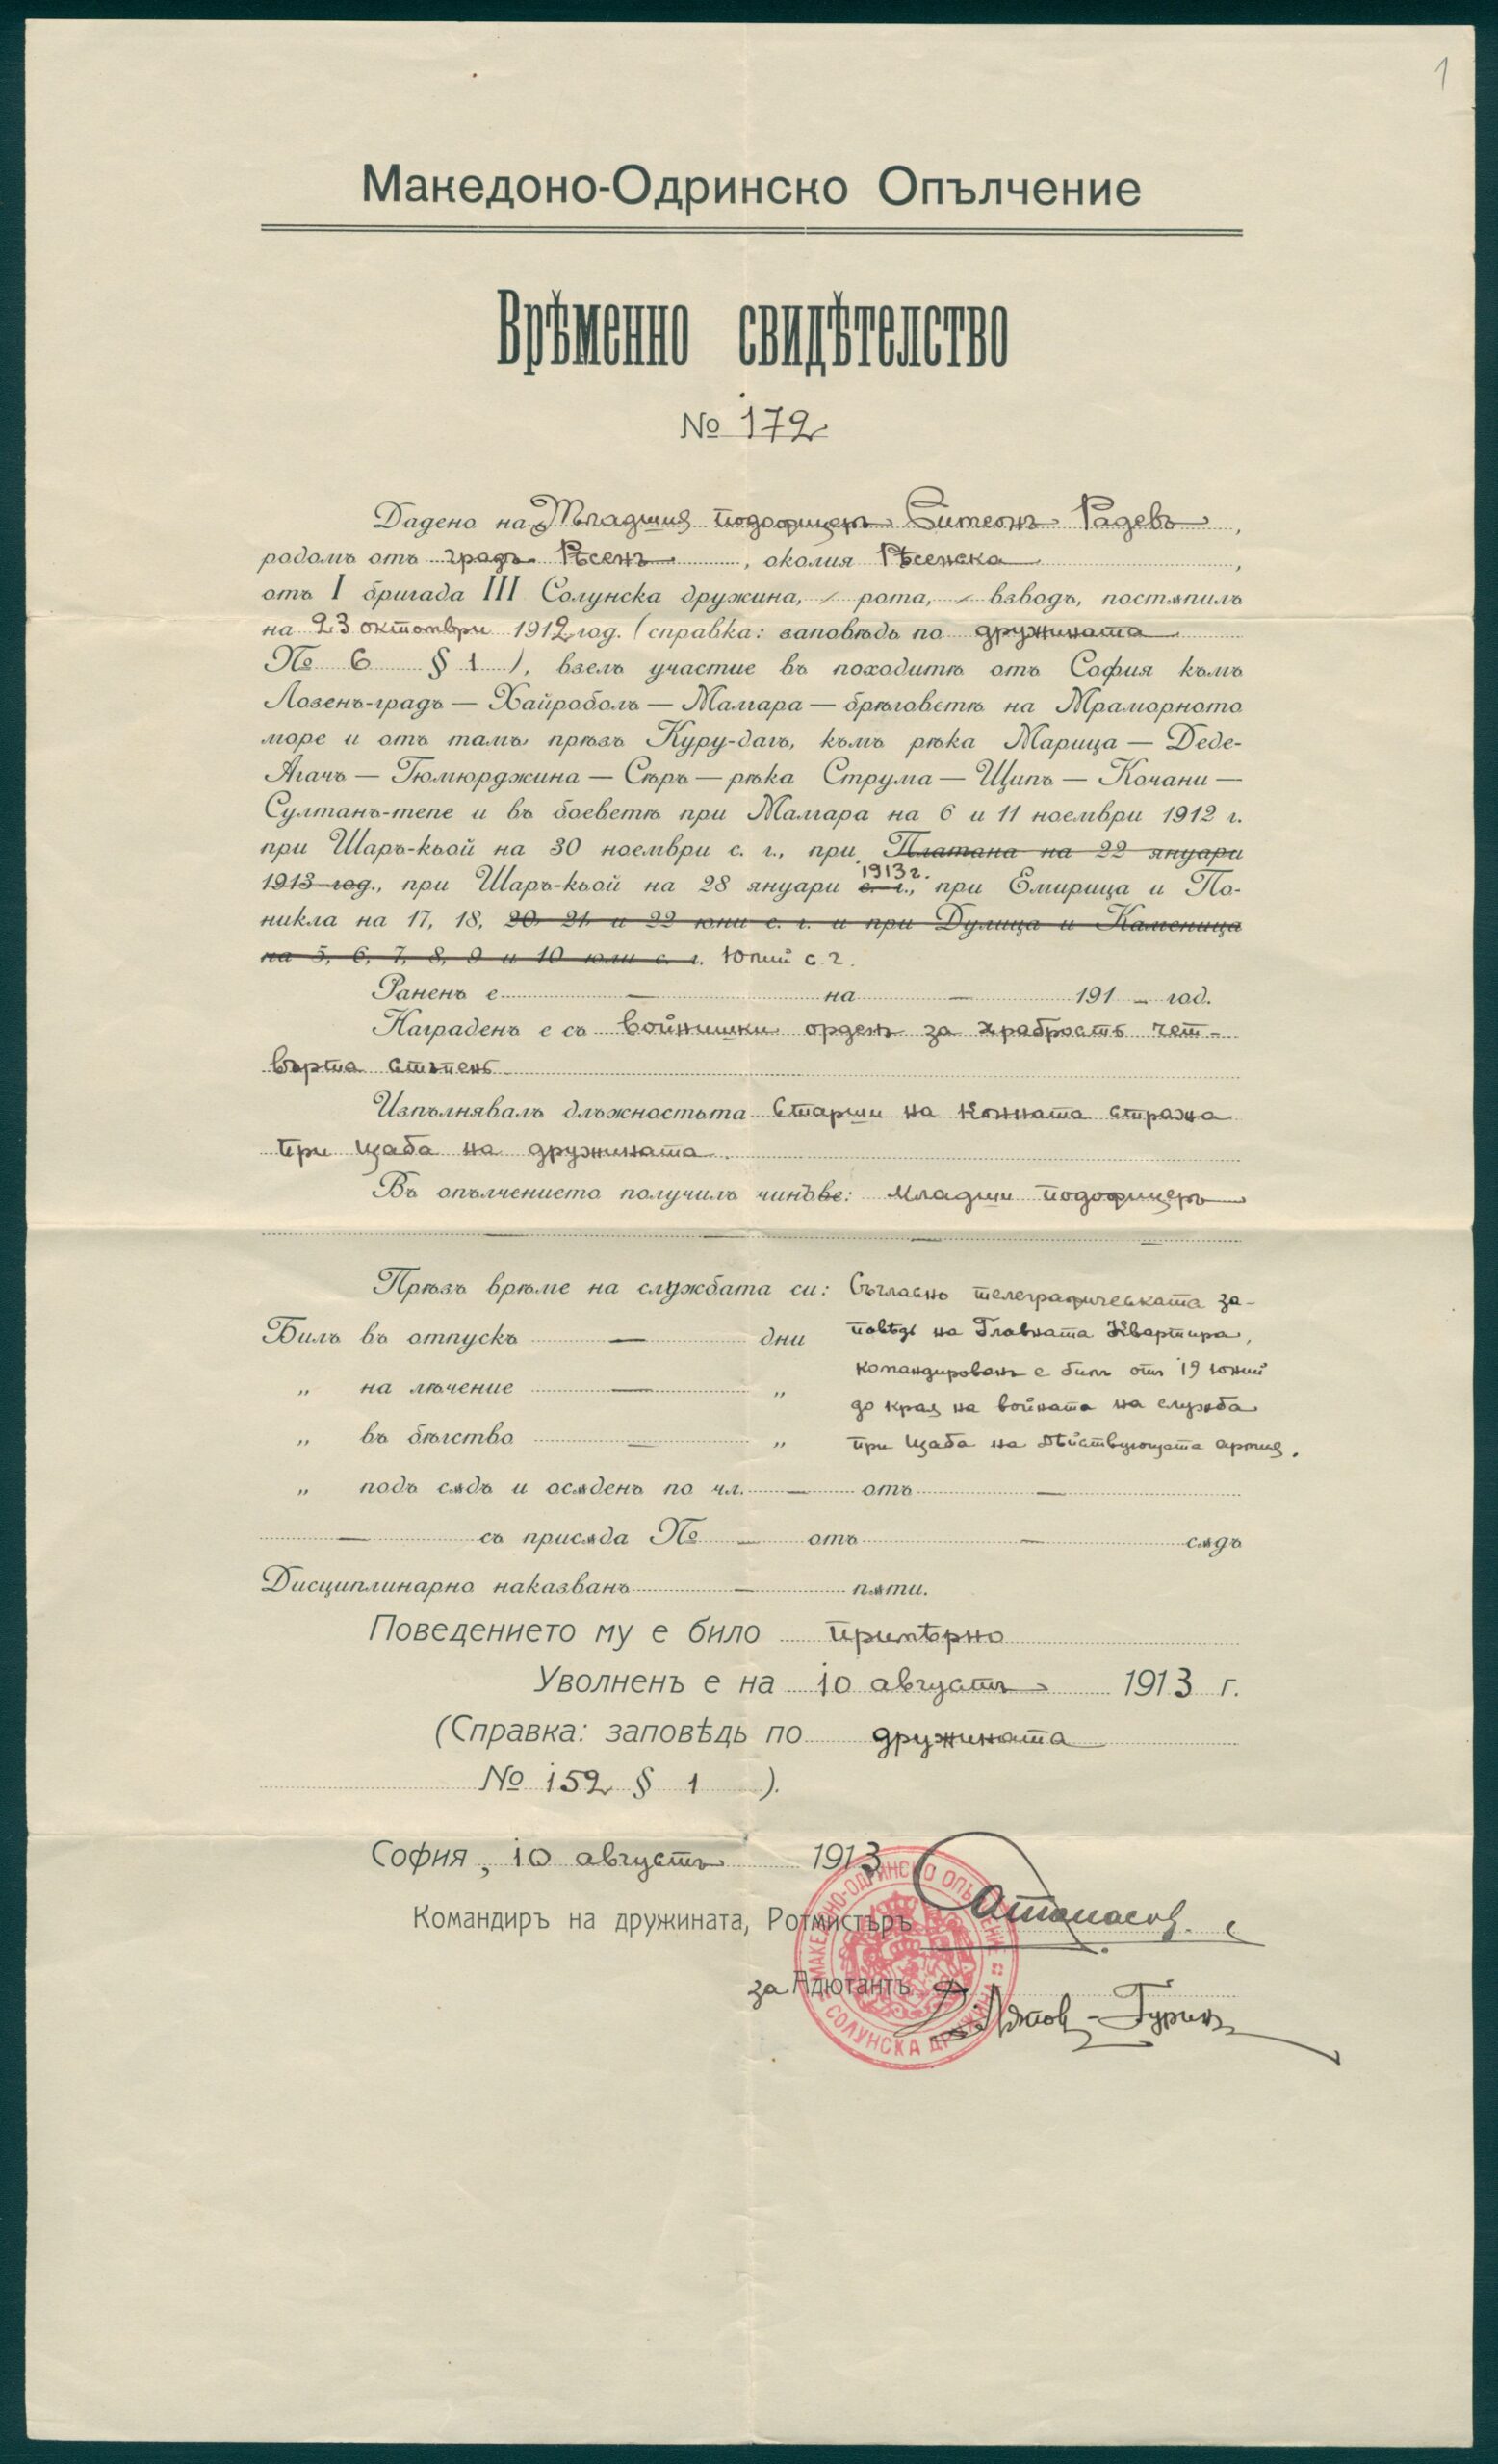 1
Македоно-Одринско Опълчение
Врѣменно свидѣтелство
№ 172
Дадено на Младшия подофицеръ Симеонъ Радевъ,
родомъ отъ градъ Рѣсенъ, околия Рѣсенска,
отъ I бригада III Солунска дружина, рота, взводъ, постѫпилъ
на 23 октомври 1912 год. (справка: заповѣдь по дружината
№ 6 § 1), взелъ участие въ походитѣ отъ София къмъ
Лозенъ-градъ — Хайроболъ — Малгара — брѣговетѣ на Мраморното
море и отъ тамъ прѣзъ Куру-дагъ, къмъ рѣка Марица — Деде-
Агачъ — Гюмюрджина — Сѣръ — рѣка Струма — Щипъ — Кочани —
Султанъ-тепе и въ боеветѣ при Малгара на 6 и 11 ноември 1912 г.
при Шаръ-кьой на 30 ноември с. г., при Платана на 22 януари
1913 г.
1913 год., при Шаръ-кьой на 28 януари с. г., при Емирица и По-
никла на 17, 18, 20, 21 и 22 юни с. г. и при Дулица и Каменица
на 5, 6, 7, 8, 9 и 10 юли с. г. Юний с. г.
Раненъ е — на — 191 — год.
Награденъ е съ войнишки орденъ за храбрость чет-
върта степень
Изпълнявалъ длъжностьта Старши на Конната стража
при щаба на дружината.
Въ опълчението получилъ чинъве: младши подофицеръ
— — — —
Прѣзъ врѣме на службата си: Съгласно телеграфическата за-
Билъ въ отпускъ — дни повѣдь на Главната Квартира,
„ на лѣчение — „ командированъ е билъ отъ 19 юний
до края на войната на служба
„ въ бѣгство — „ при щаба на Дѣйствующата армия.
„ подъ сѫдъ и осѫденъ по чл. — отъ —
— съ присѫда № — отъ — сѫдъ
Дисциплинарно наказванъ — пѫти.
Поведението му е било примѣрно
Уволненъ е на 10 августъ 1913 г.
(Справка: заповѣдь по дружината
№ 152 § 1 ).
София, 10 августъ 1913
Командиръ на дружината, Ротмистъръ Атанасов
за Адютантъ
МАКЕДОНО-ОДРИНСКО ОПЪЛЧЕНИЕ
СОЛУНСКА ДРУЖИНА